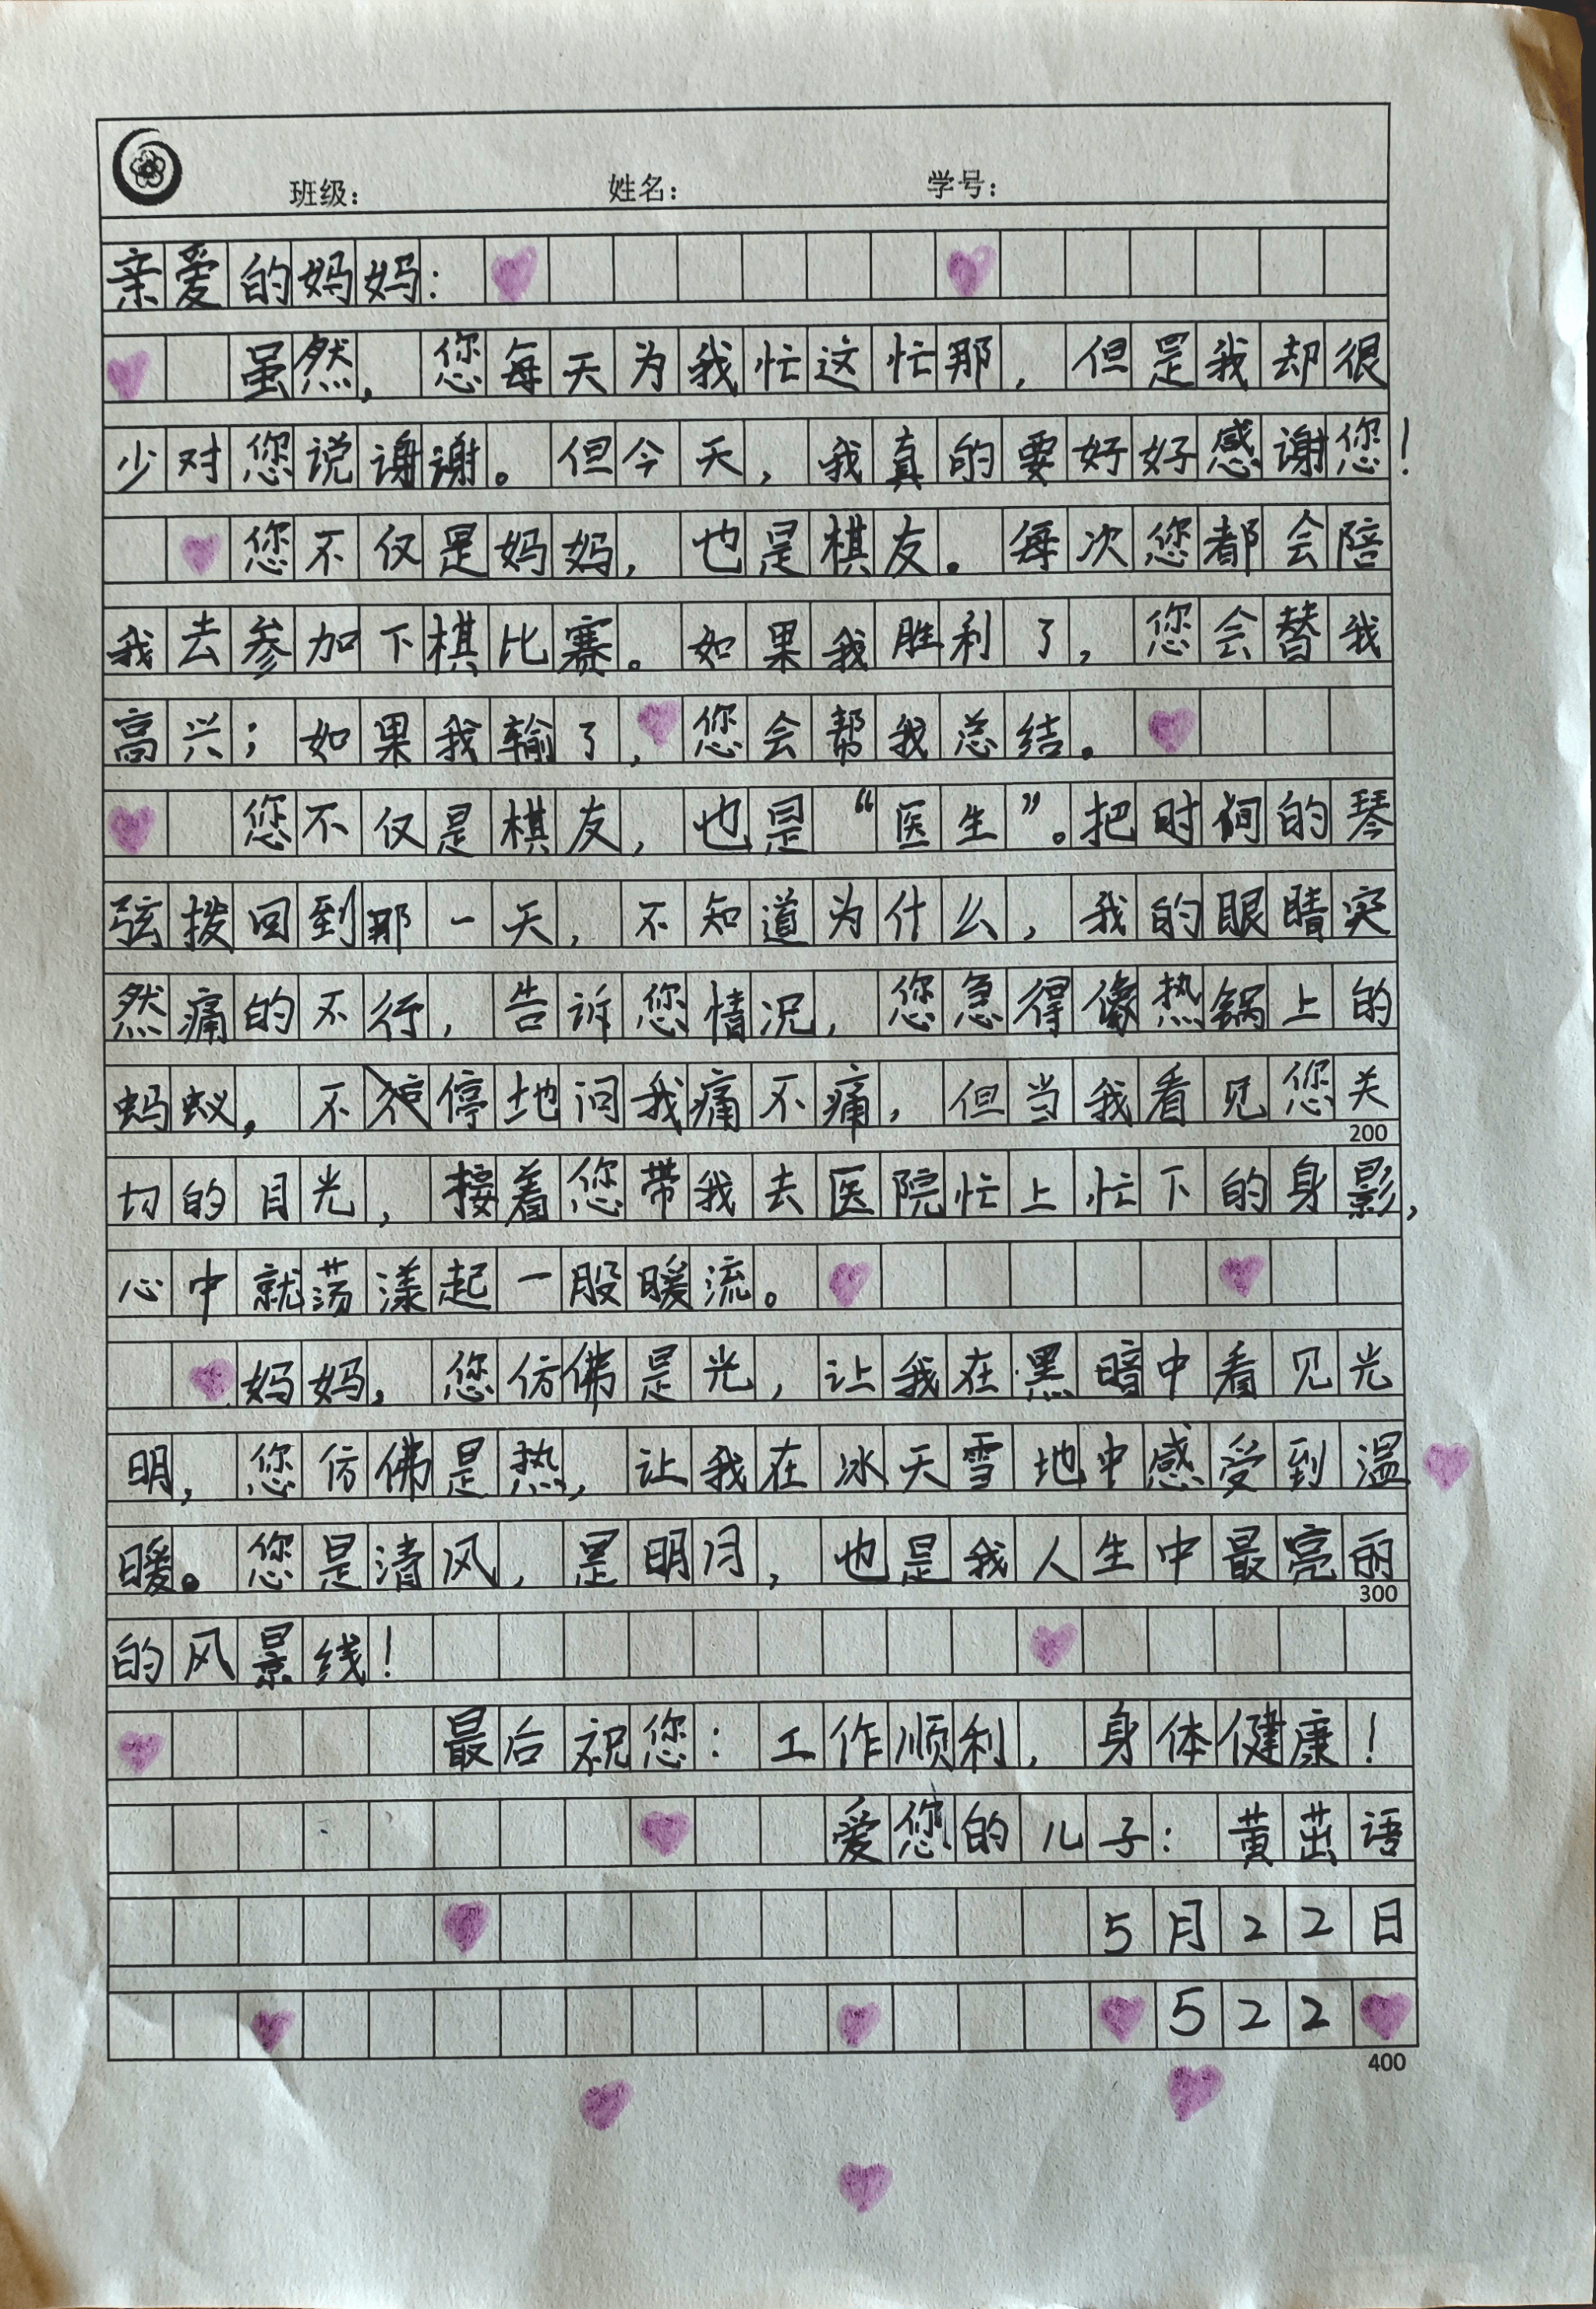 班级： 姓名： 学号：
亲爱的妈妈：
虽然，您每天为我忙这忙那，但是我却很
少对您说谢谢。但今天，我真的要好好感谢您！
您不仅是妈妈，也是棋友。每次您都会陪
我去参加下棋比赛。如果我胜利了，您会替我
高兴；如果我输了，您会帮我总结。
您不仅是棋友，也是“医生”。把时间的琴
弦拨回到那一天，不知道为什么，我的眼睛突
然痛的不行，告诉您情况，您急得像热锅上的
蚂蚁，不停地问我痛不痛，但当我看见您关
200
切的目光，接着您带我去医院忙上忙下的身影，
心中就荡漾起一股暖流。
妈妈，您仿佛是光，让我在黑暗中看见光
明，您仿佛是热，让我在冰天雪地中感受到温
暖。您是清风，是明月，也是我人生中最亮丽
300
的风景线！
最后祝您：工作顺利，身体健康！
爱您的儿子：黄茁语
5月22日
522
400